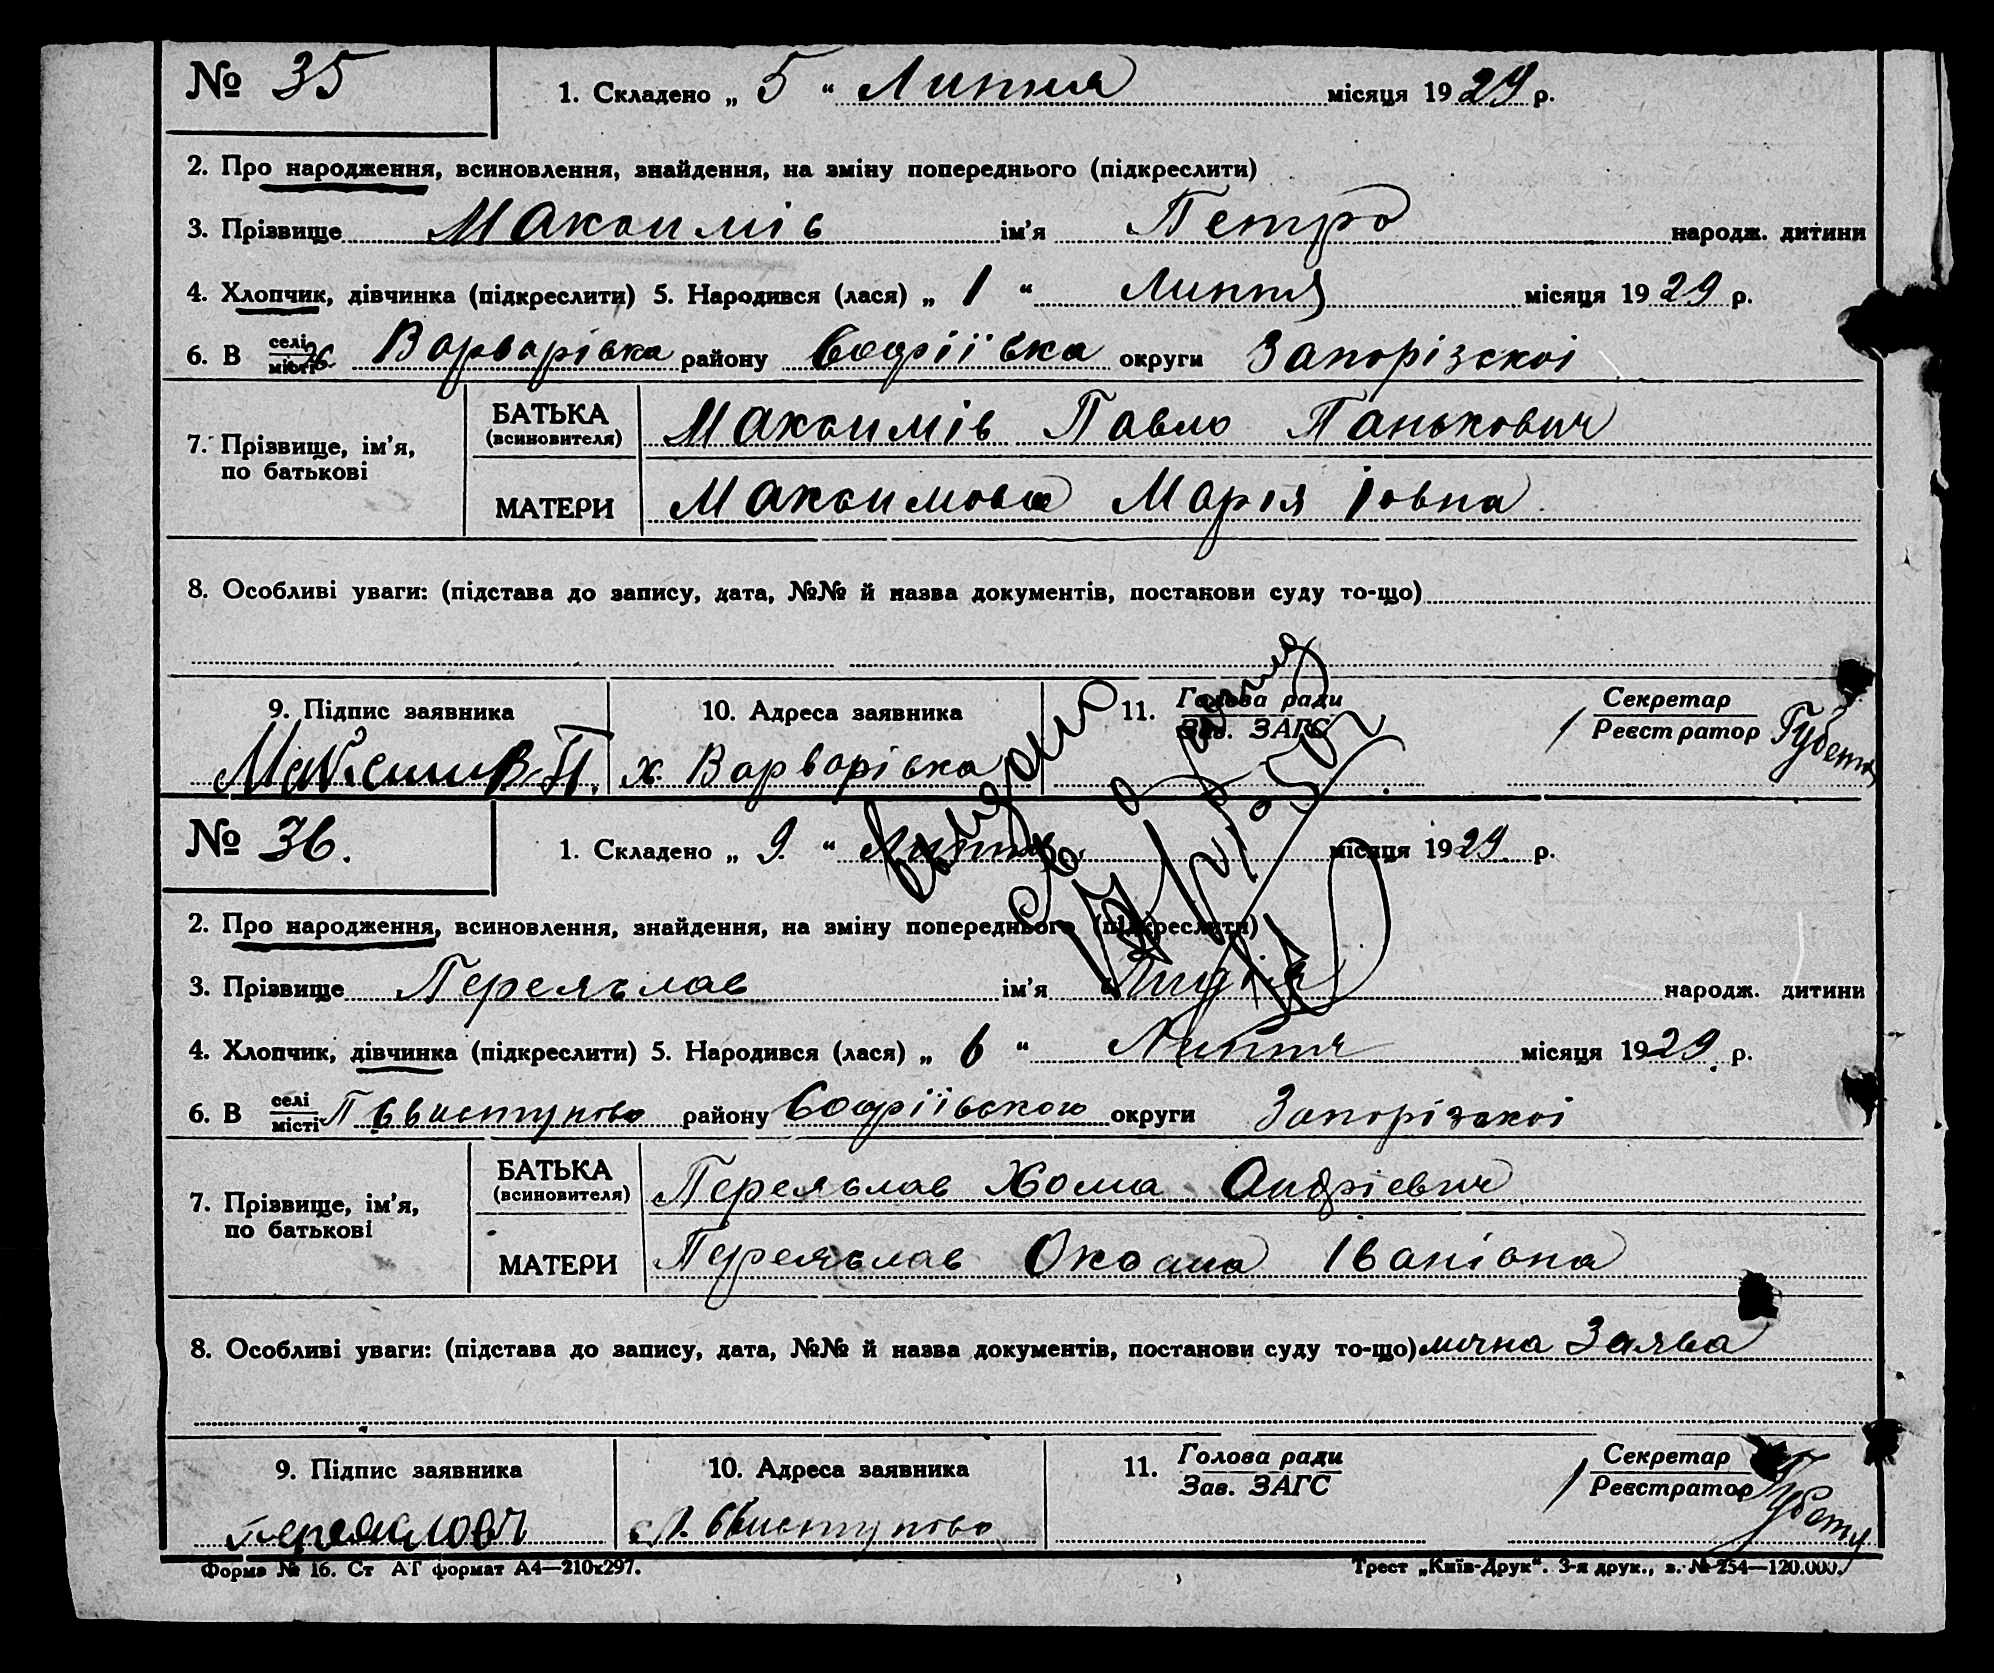 № 35 1. Складено „ 5 “ Липня місяця 1929 р.
2. Про народження, всиновлення, знайдення, на зміну попереднього (підкреслити)
3. Прізвище Максимів ім'я Петро народж. дитини
4. Хлопчик, дівчинка (підкреслити) 5. Народився (лася) „ 1 “ Липня місяця 1929 р.
6. В селі місті х. Варварівка району Софіївка округи Запорізскоі
7. Прізвище, ім'я, по батькові
БАТЬКА (всиновителя) Максимів Павло Панькович
МАТЕРИ Максимова Марія Іовна
8. Особливі уваги: (підстава до запису, дата, №№ й назва документів, постанови суду то-що)
9. Підпис заявника 10. Адреса заявника 11. Голова ради Зав. ЗАГС Секретар Реєстратор
Максимів П. х. Варварівка
Видано
№ 36. 1. Складено „ 9. “ Липня місяця 1929 р.
2. Про народження, всиновлення, знайдення, на зміну попереднього (підкреслити)
3. Прізвище Переяслав ім'я Лидія народж. дитини
4. Хлопчик, дівчинка (підкреслити) 5. Народився (лася) „ 6 “ Липня місяця 1929 р.
6. В селі місті району Софіївського округи Запорізскоі
7. Прізвище, ім'я, по батькові
БАТЬКА (всиновителя) Переяслав Хома Андріевич
МАТЕРИ Переяслав Оксана Іванівна
8. Особливі уваги: (підстава до запису, дата, №№ й назва документів, постанови суду то-що) лична Заява
9. Підпис заявника 10. Адреса заявника 11. Голова ради Зав. ЗАГС Секретар Реєстратор
Форма № 16. Ст АГ формат А4—210х297. Трест „Київ-Друк“. 3-я друк., з. № 254—120.000.